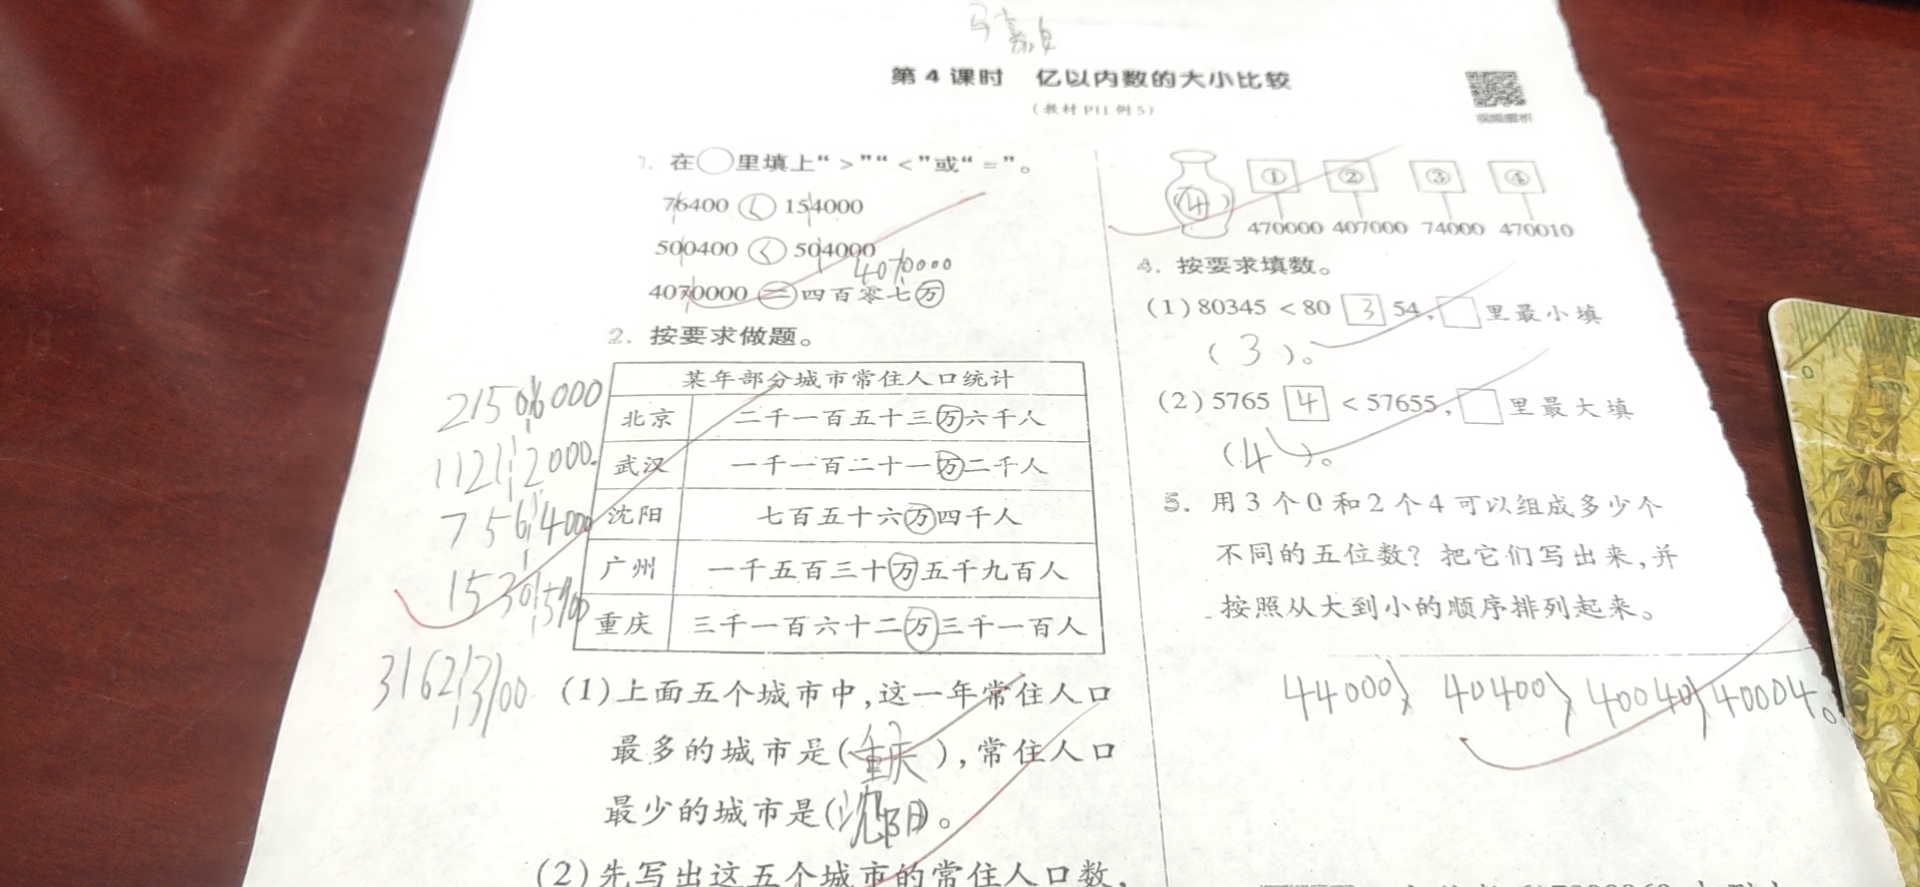 第 4 课时 亿以内数的大小比较
(教材 P11 例 5)
视频解析
1. 在○里填上“>”“<”或“=”。
76400 < 154000
500400 < 504000
4070000
4070000 = 四百零七万
2. 按要求做题。
某年部分城市常住人口统计
北京 二千一百五十三万六千人
武汉 一千一百二十一万二千人
11212000
沈阳 七百五十六万四千人
7564000
广州 一千五百三十万五千九百人
15305900
重庆 三千一百六十二万三千一百人
(1)上面五个城市中,这一年常住人口
最多的城市是(重庆),常住人口
最少的城市是(沈阳)。
(2)先写出这五个城市的常住人口数,
① ② ③ ④
470000 407000 74000 470010
4. 按要求填数。
(1)80345 < 80 3 54,□里最小填
(3)。
(2)5765 4 < 57655,□里最大填
(4)。
5. 用 3 个 0 和 2 个 4 可以组成多少个
不同的五位数?把它们写出来,并
按照从大到小的顺序排列起来。
44000> 40400> 40040> 40004。